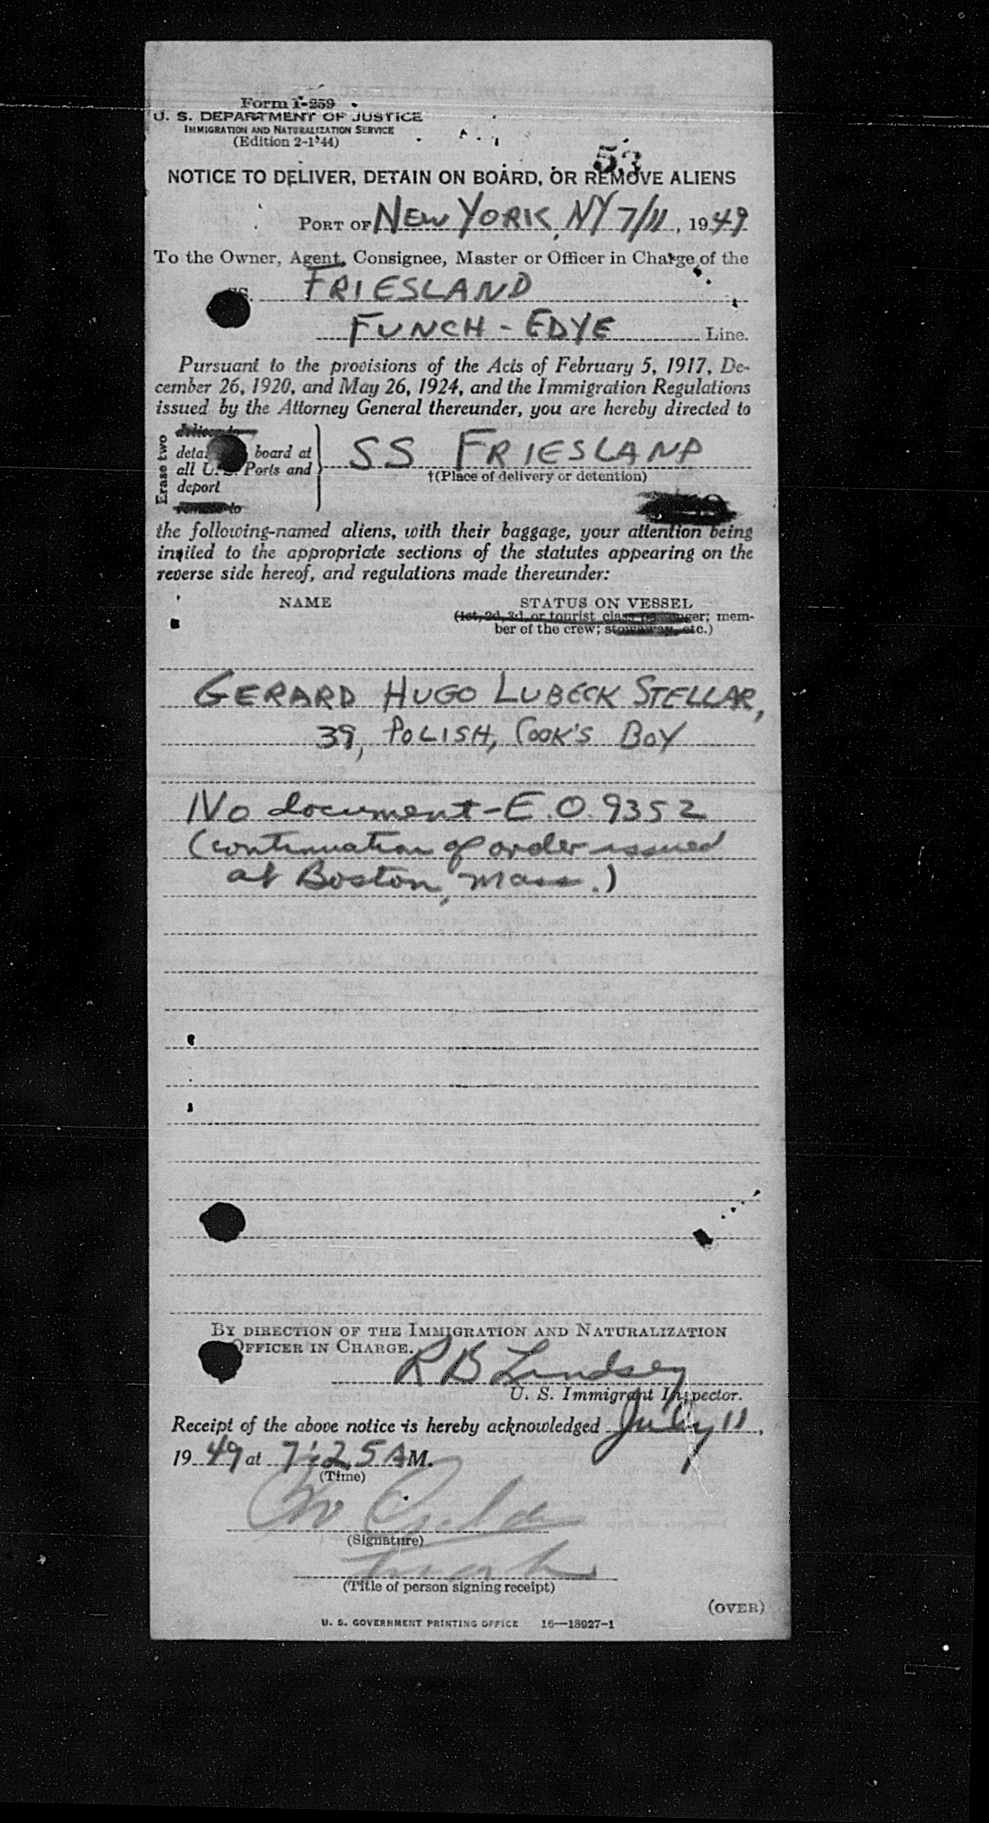 Form I-259
U. S. DEPARTMENT OF JUSTICE
IMMIGRATION AND NATURALIZATION SERVICE
(Edition 2-1-44)
53
NOTICE TO DELIVER, DETAIN ON BOARD, OR REMOVE ALIENS
PORT OF NEW YORK, NY 7/11, 1949
To the Owner, Agent, Consignee, Master or Officer in Charge of the
SS. FRIESLAND
FUNCH - EDYE Line.
Pursuant to the provisions of the Acts of February 5, 1917, De-
cember 26, 1920, and May 26, 1924, and the Immigration Regulations
issued by the Attorney General thereunder, you are hereby directed to
Erase two
deliver to
detain on board at
all U. S. Ports and
deport
remove to
SS FRIESLAND
†(Place of delivery or detention)
the following-named aliens, with their baggage, your attention being
invited to the appropriate sections of the statutes appearing on the
reverse side hereof, and regulations made thereunder:
NAME STATUS ON VESSEL
(1st, 2d, 3d, or tourist class passenger; mem-
ber of the crew; stowaway, etc.)
GERARD HUGO LUBECK STELLAR,
39, POLISH, COOK'S BOY
No document - E.O. 9352
(continuation of order issued
at Boston, Mass.)
BY DIRECTION OF THE IMMIGRATION AND NATURALIZATION
OFFICER IN CHARGE.
R B Lindsey
U. S. Immigrant Inspector.
Receipt of the above notice is hereby acknowledged July 11,
1949 at 7:25 AM.
(Time)
(Signature)
(Title of person signing receipt)
(OVER)
U. S. GOVERNMENT PRINTING OFFICE 16—18927-1